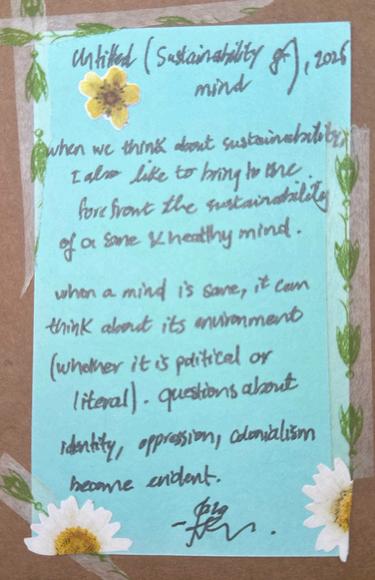 Untitled (Sustainability of), 2025
mind
when we think about sustainability,
I also like to bring to the
forefront the sustainability
of a sane & healthy mind.
when a mind is sane, it can
think about its environment
(whether it is political or
literal). questions about
identity, oppression, colonialism
become evident.